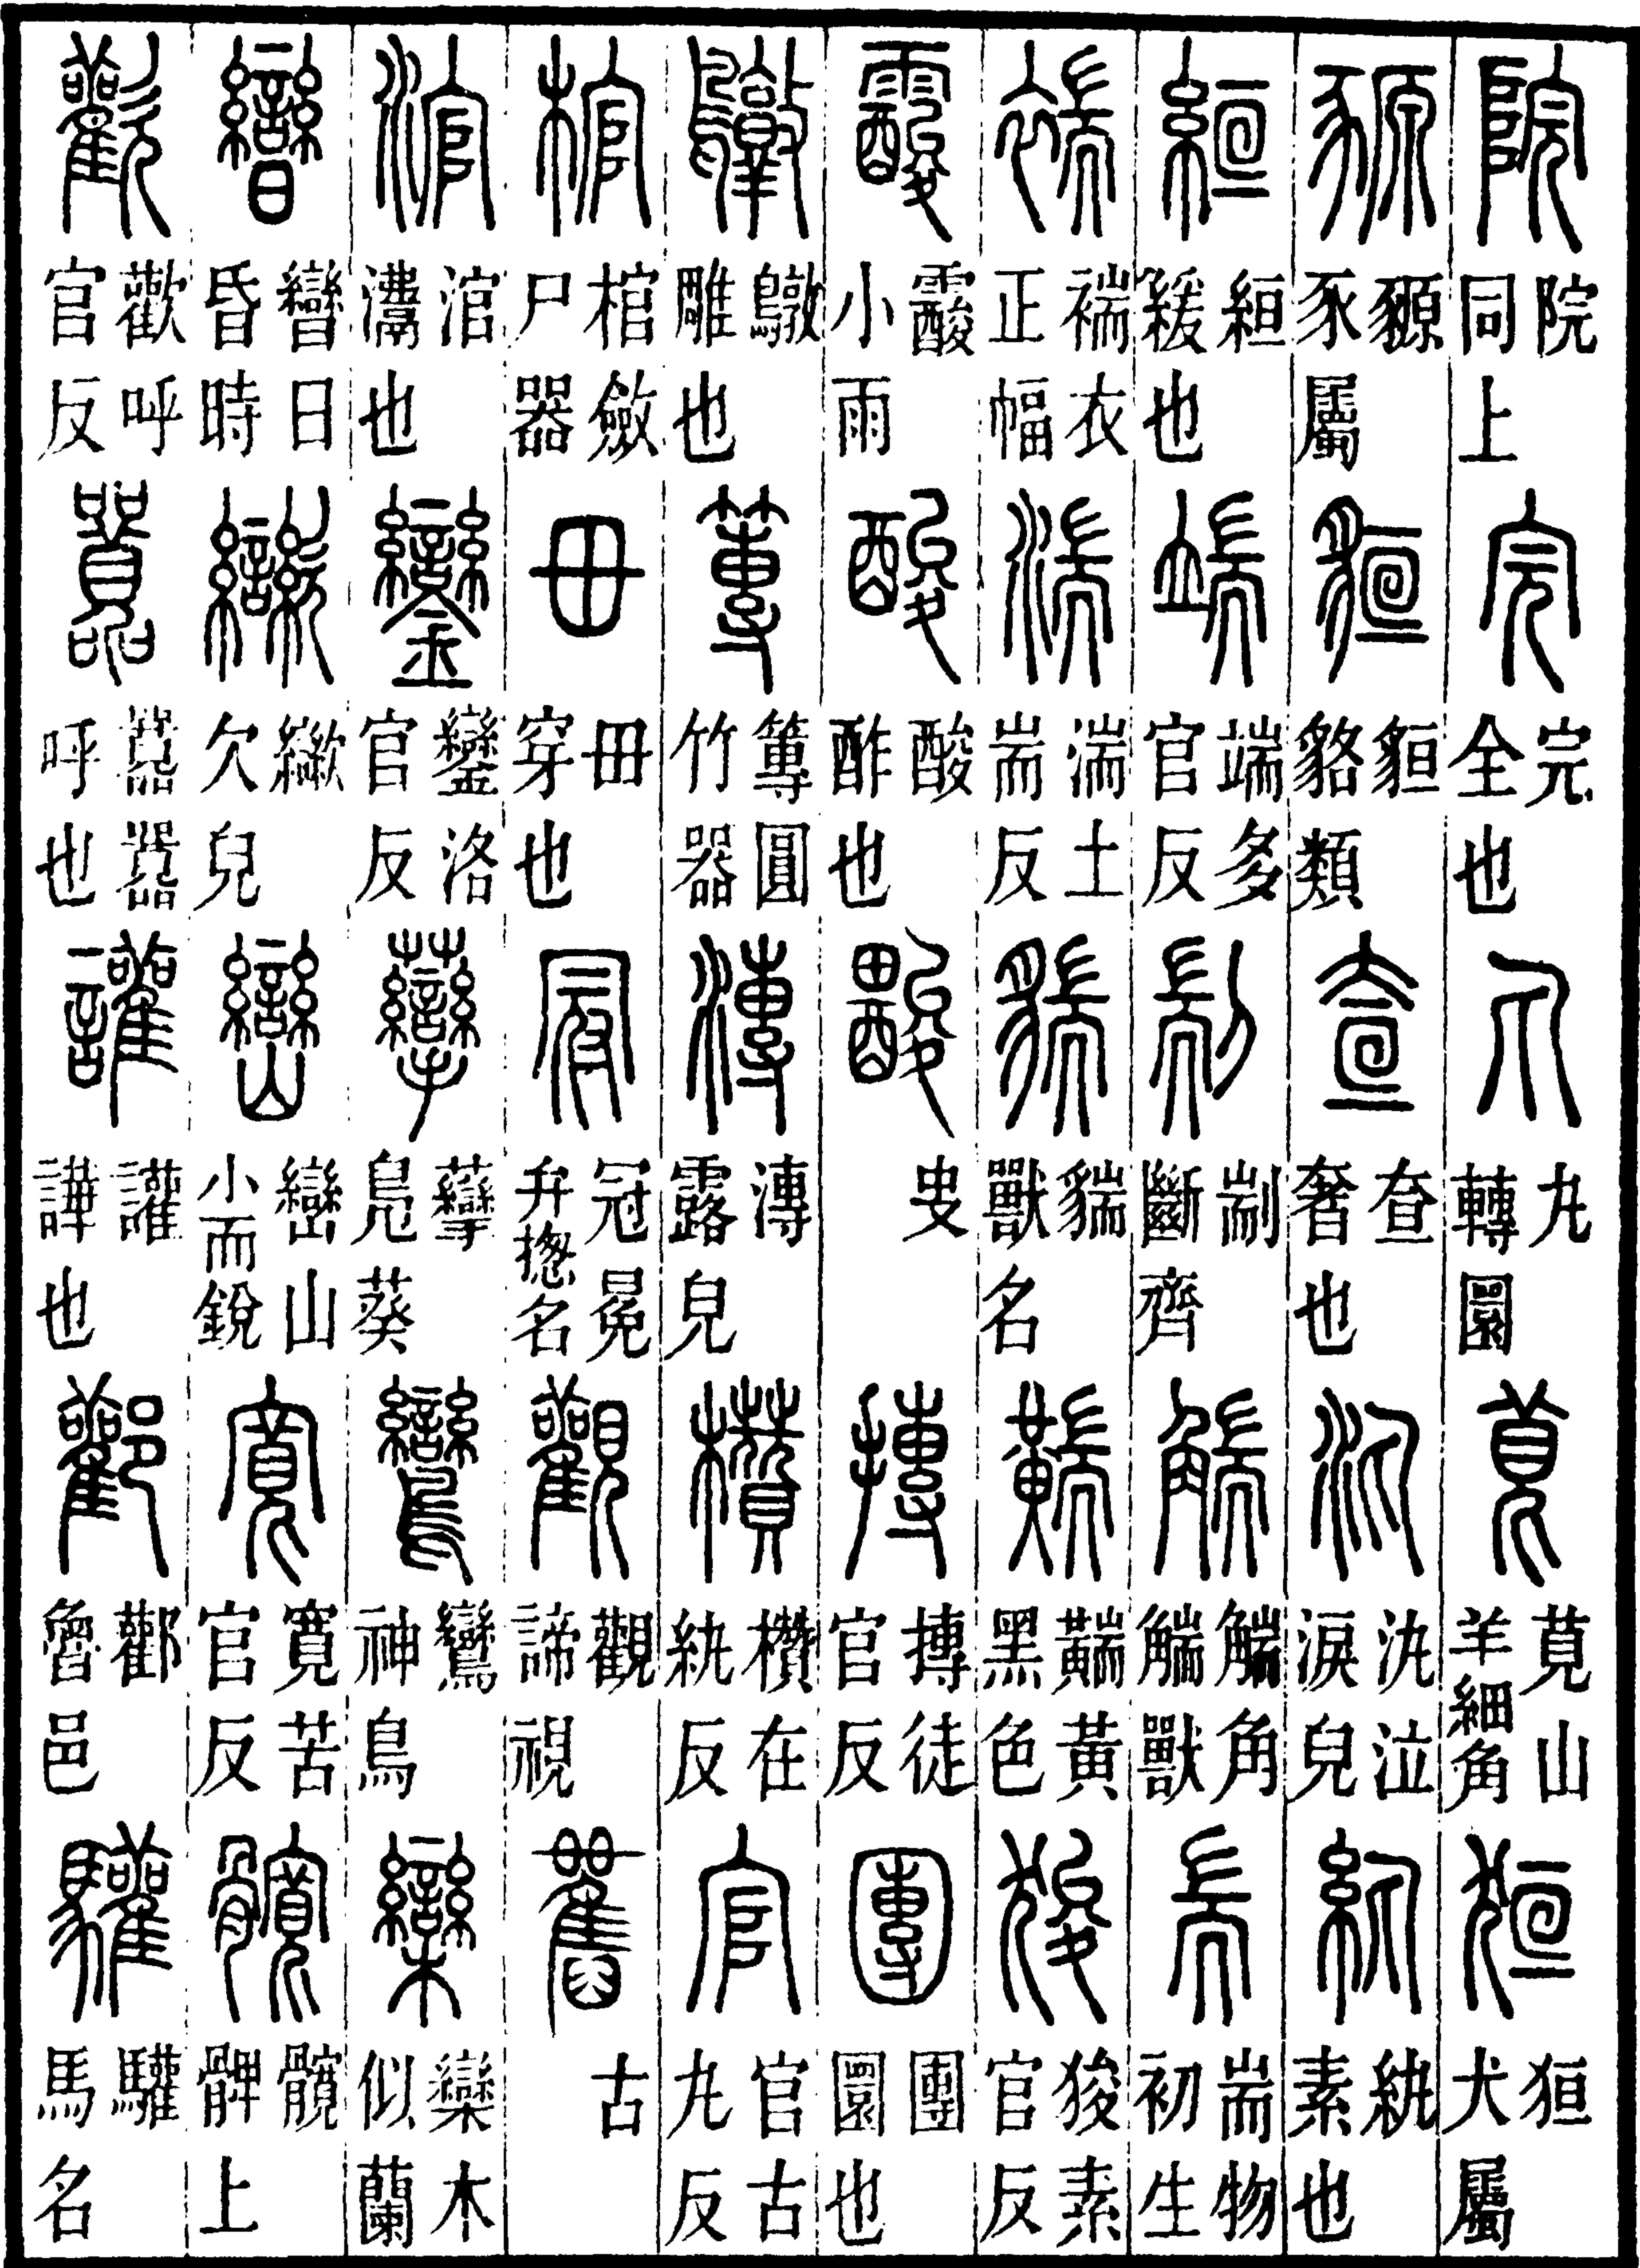 院院同上完完全也丸丸轉圜莧莧山羊細角狟狟犬屬
豲豲豕屬貆貆貉類查查奢也汍汍泣淚皃紈紈素也
絙絙緩也端端多官反剬剬斷齊𧤗𧤗角𧤗獸耑耑物初生
褍褍衣正幅湍湍土耑反貒貒獸名黃黑色狻狻素官反
小雨酸酸酢也史摶摶徒官反團團圜也
鷻鷻雕也篿篿圓竹器漙漙露皃欑欑在紈反官官古丸反
棺棺斂尸器毌毌穿也冠冠冕弁摠名觀觀諦視古
涫涫㶣也鑾鑾洛官反虊虊鳧葵鸞鸞神鳥欒欒木似蘭
曫曫日昏時㱍㱍欠皃巒巒山小而銳寬寬苦官反髖髖髀上
歡歡呼官反呼也讙讙譁也酄酄魯邑驩驩馬名